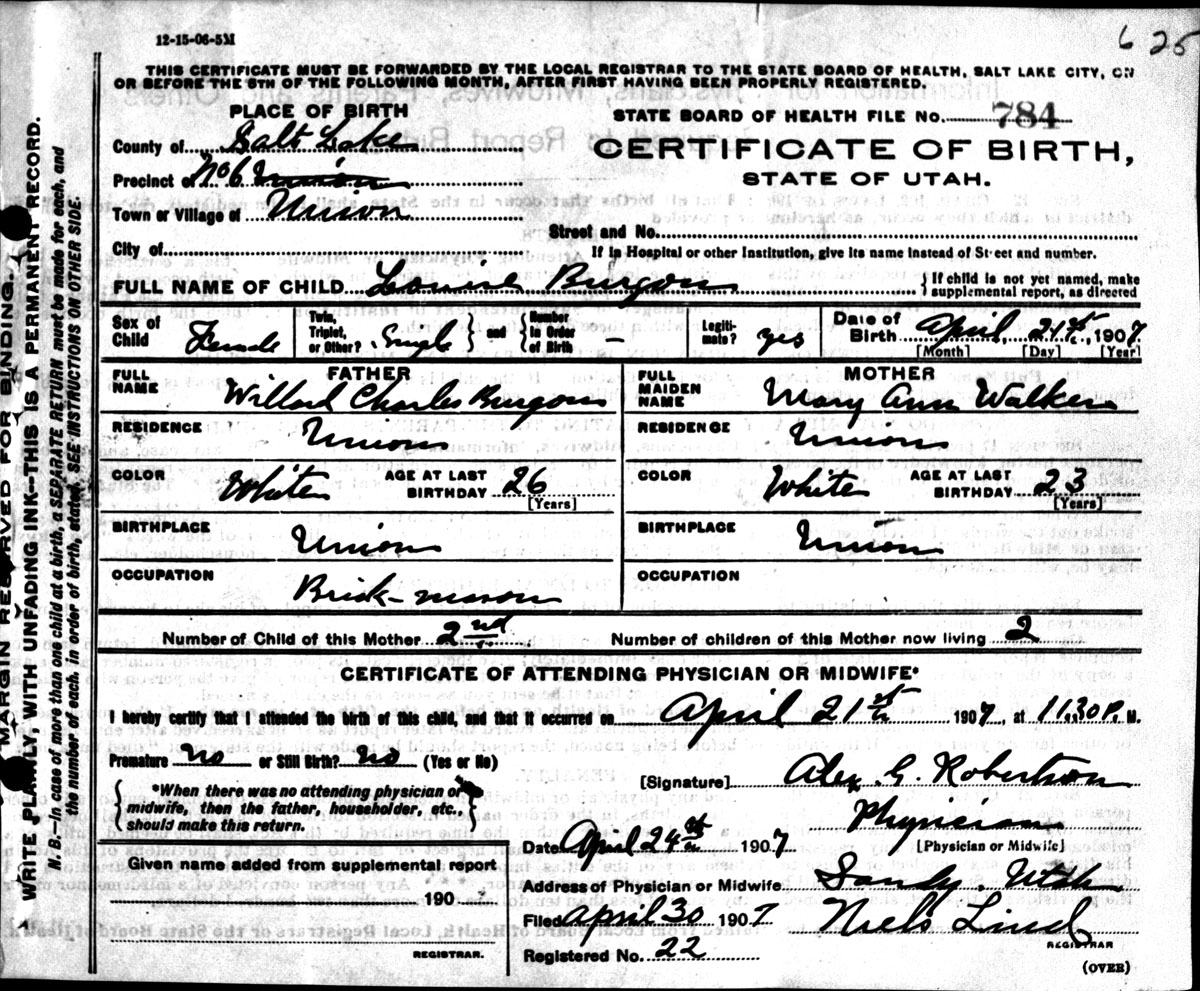 12-15-06-5M
6 25
THIS CERTIFICATE MUST BE FORWARDED BY THE LOCAL REGISTRAR TO THE STATE BOARD OF HEALTH, SALT LAKE CITY, ON
OR BEFORE THE 5TH OF THE FOLLOWING MONTH, AFTER FIRST HAVING BEEN PROPERLY REGISTERED.
PLACE OF BIRTH
County of Salt Lake
Precinct of No 6 Union
Town or Village of Union
City of
STATE BOARD OF HEALTH FILE No. 784
CERTIFICATE OF BIRTH,
STATE OF UTAH.
Street and No.
If in Hospital or other Institution, give its name instead of Street and number.
FULL NAME OF CHILD Louise Burgon { If child is not yet named, make supplemental report, as directed
Sex of Child Female
Twin, Triplet, or Other? Single } and { Number in Order of Birth –
Legitimate? yes
Date of Birth April, 21st, 1907
[Month] [Day] [Year]
FATHER
FULL NAME Willard Charles Burgon
RESIDENCE Union
COLOR White AGE AT LAST BIRTHDAY 26
[Years]
BIRTHPLACE Union
OCCUPATION Brick-mason
MOTHER
FULL MAIDEN NAME Mary Ann Walker
RESIDENCE Union
COLOR White AGE AT LAST BIRTHDAY 23
[Years]
BIRTHPLACE Union
OCCUPATION
Number of Child of this Mother 2nd Number of children of this Mother now living 2
CERTIFICATE OF ATTENDING PHYSICIAN OR MIDWIFE*
I hereby certify that I attended the birth of this child, and that it occurred on April 21st 1907, at 11.30 P. M.
Premature no or Still Birth? no (Yes or No)
{ *When there was no attending physician or
midwife, then the father, householder, etc.,
should make this return. }
Given name added from supplemental report
190
REGISTRAR.
[Signature] Alex. G. Robertson
Physician
[Physician or Midwife]
Date April 24th 1907
Address of Physician or Midwife Sandy. Utah
Filed April 30 1907 Niels Lind
REGISTRAR
Registered No. 22
(OVER)
MARGIN RESERVED FOR BINDING.
WRITE PLAINLY, WITH UNFADING INK—THIS IS A PERMANENT RECORD.
N. B.—In case of more than one child at a birth, a SEPARATE RETURN must be made for each, and
the number of each, in order of birth, stated. SEE INSTRUCTIONS ON OTHER SIDE.